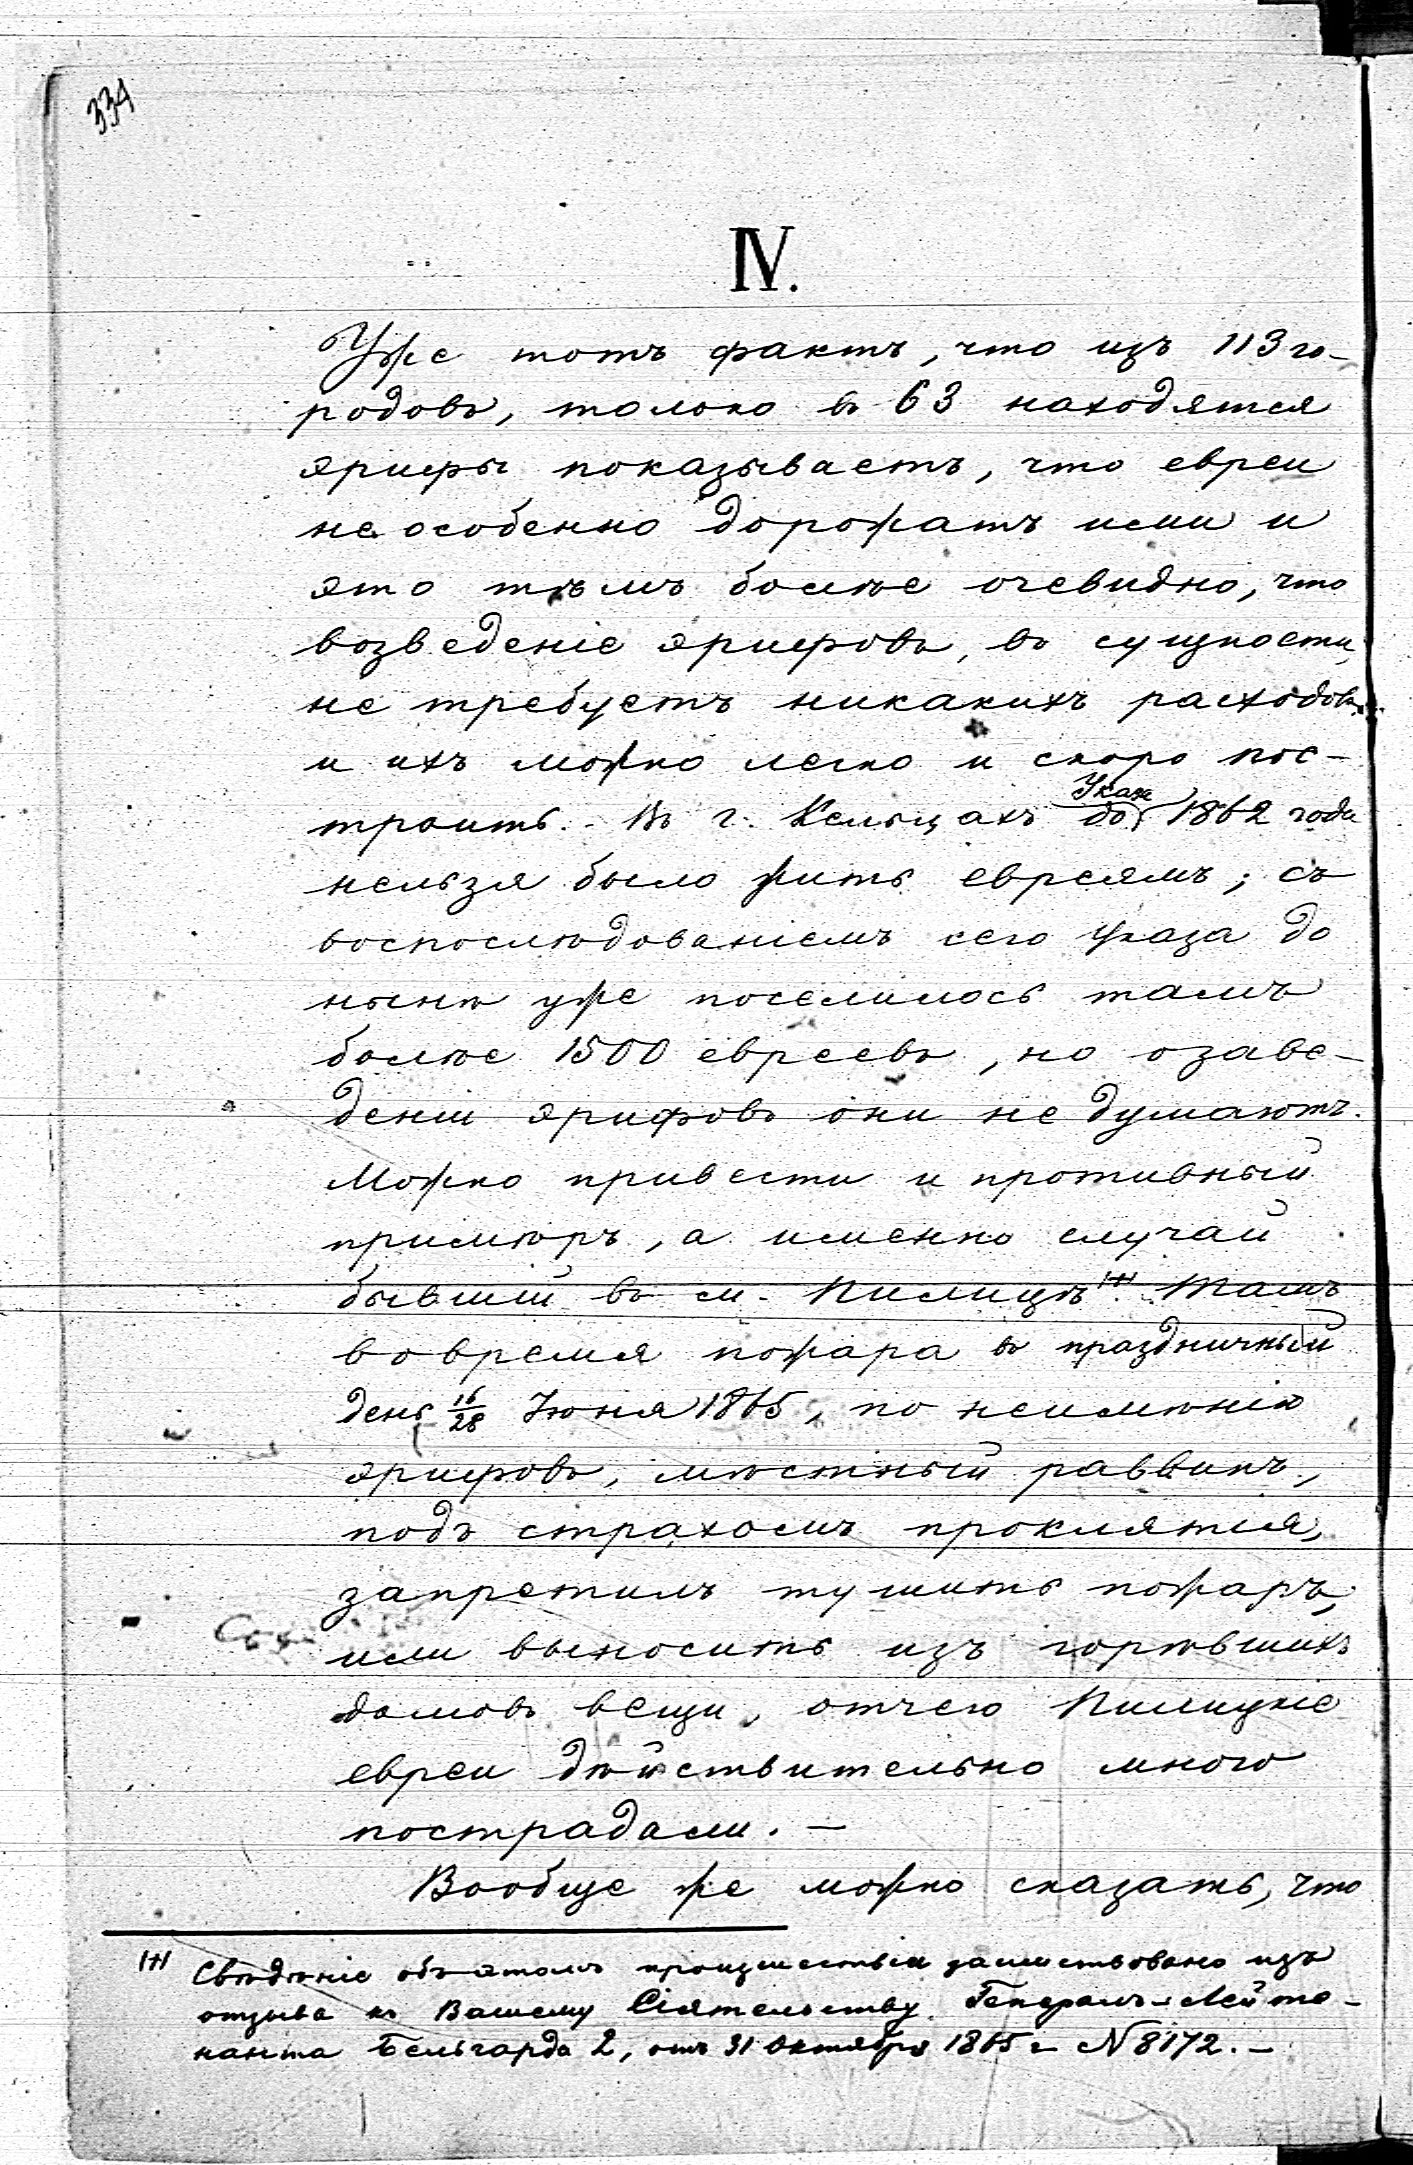 334
IV.
Уже тотъ фактъ, что изъ 113 го-
родовъ, только въ 63 находятся
эрифы показываетъ, что евреи
не особенно дорожатъ ими и
это тѣмъ болѣе очевидно, что
возведеніе эрифовъ, въ сущности,
не требуетъ никакихъ расходовъ
и ихъ можно легко и скоро пос-
троить. - Въ г. Кельцахъ до Указа 1862 года
нельзя было жить евреямъ; съ
воспослѣдованіемъ сего Указа до
нынѣ уже поселилось тамъ
болѣе 1500 евреевъ, но о заве-
деніи эрифовъ они не думаютъ.
Можно привести и противный
примѣръ, а именно случай
бывшій въ м. Пилицѣ +). Тамъ
во время пожара въ праздничный
день 16/28 Іюня 1865, по неимѣнію
эрифовъ, мѣстный раввинъ,
подъ страхомъ проклятія,
запретилъ тушить пожаръ,
или выносить изъ горѣвшихъ
домовъ вещи, отчего Пилицкіе
евреи дѣйствительно много
пострадали. -
Вообще же можно сказать, что
+) Свѣдѣніе объ этомъ происшествіи заимствовано изъ
отзыва къ Вашему Сіятельству Генералъ-Лейте-
нанта Бельгарда 2, отъ 31 Октября 1865 г. N 8172. -